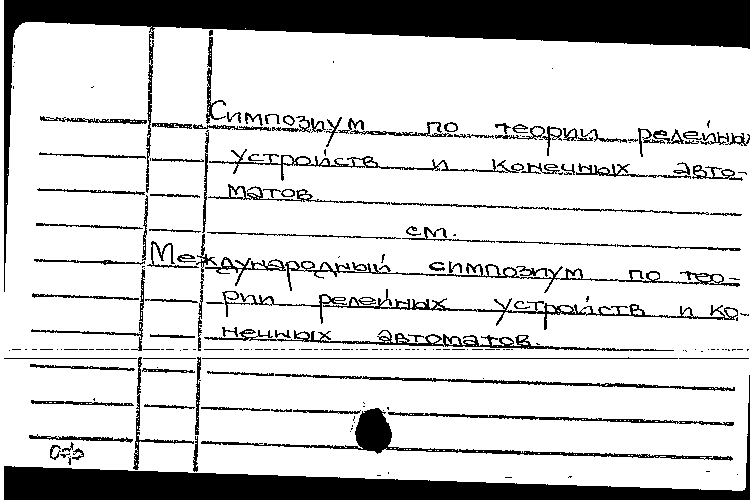 Симпозиум по теории релейных
устройств и конечных авто-
матов
см.
Международный симпозиум по тео-
рии релейных устройств и ко-
нечных автоматов.